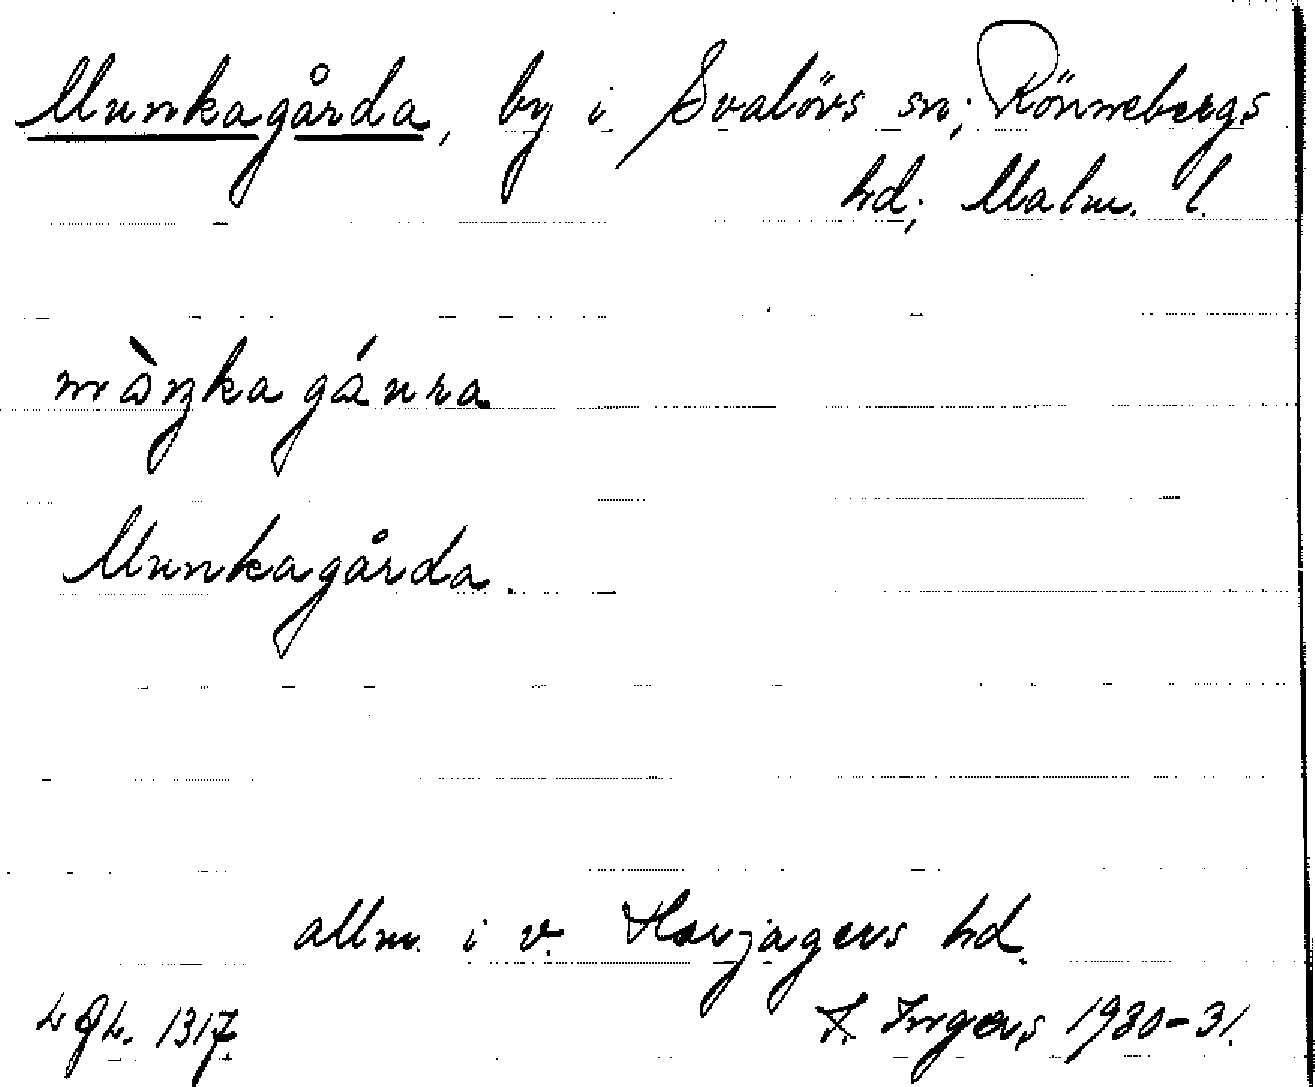 Munkagårda, by i Svalövs sn; Rönnebergs
hd; Malm. l.
Munkagårda.
allm. i v. Harjagers hd.
LGL. 1317.
I. Ingers 1930-31.